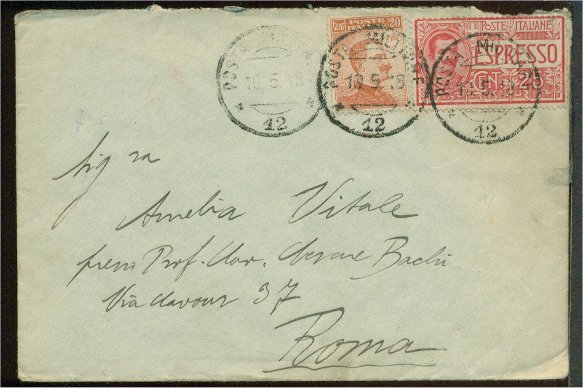 POSTA MILITARE POSTE ITALIANE
20 ESPRESSO
18.5.18 CENT. 25
12 12 12
Sig ra
Amelia Vitale
presso Prof. Cav. Cesare Bachi
Via Cavour 37
Roma